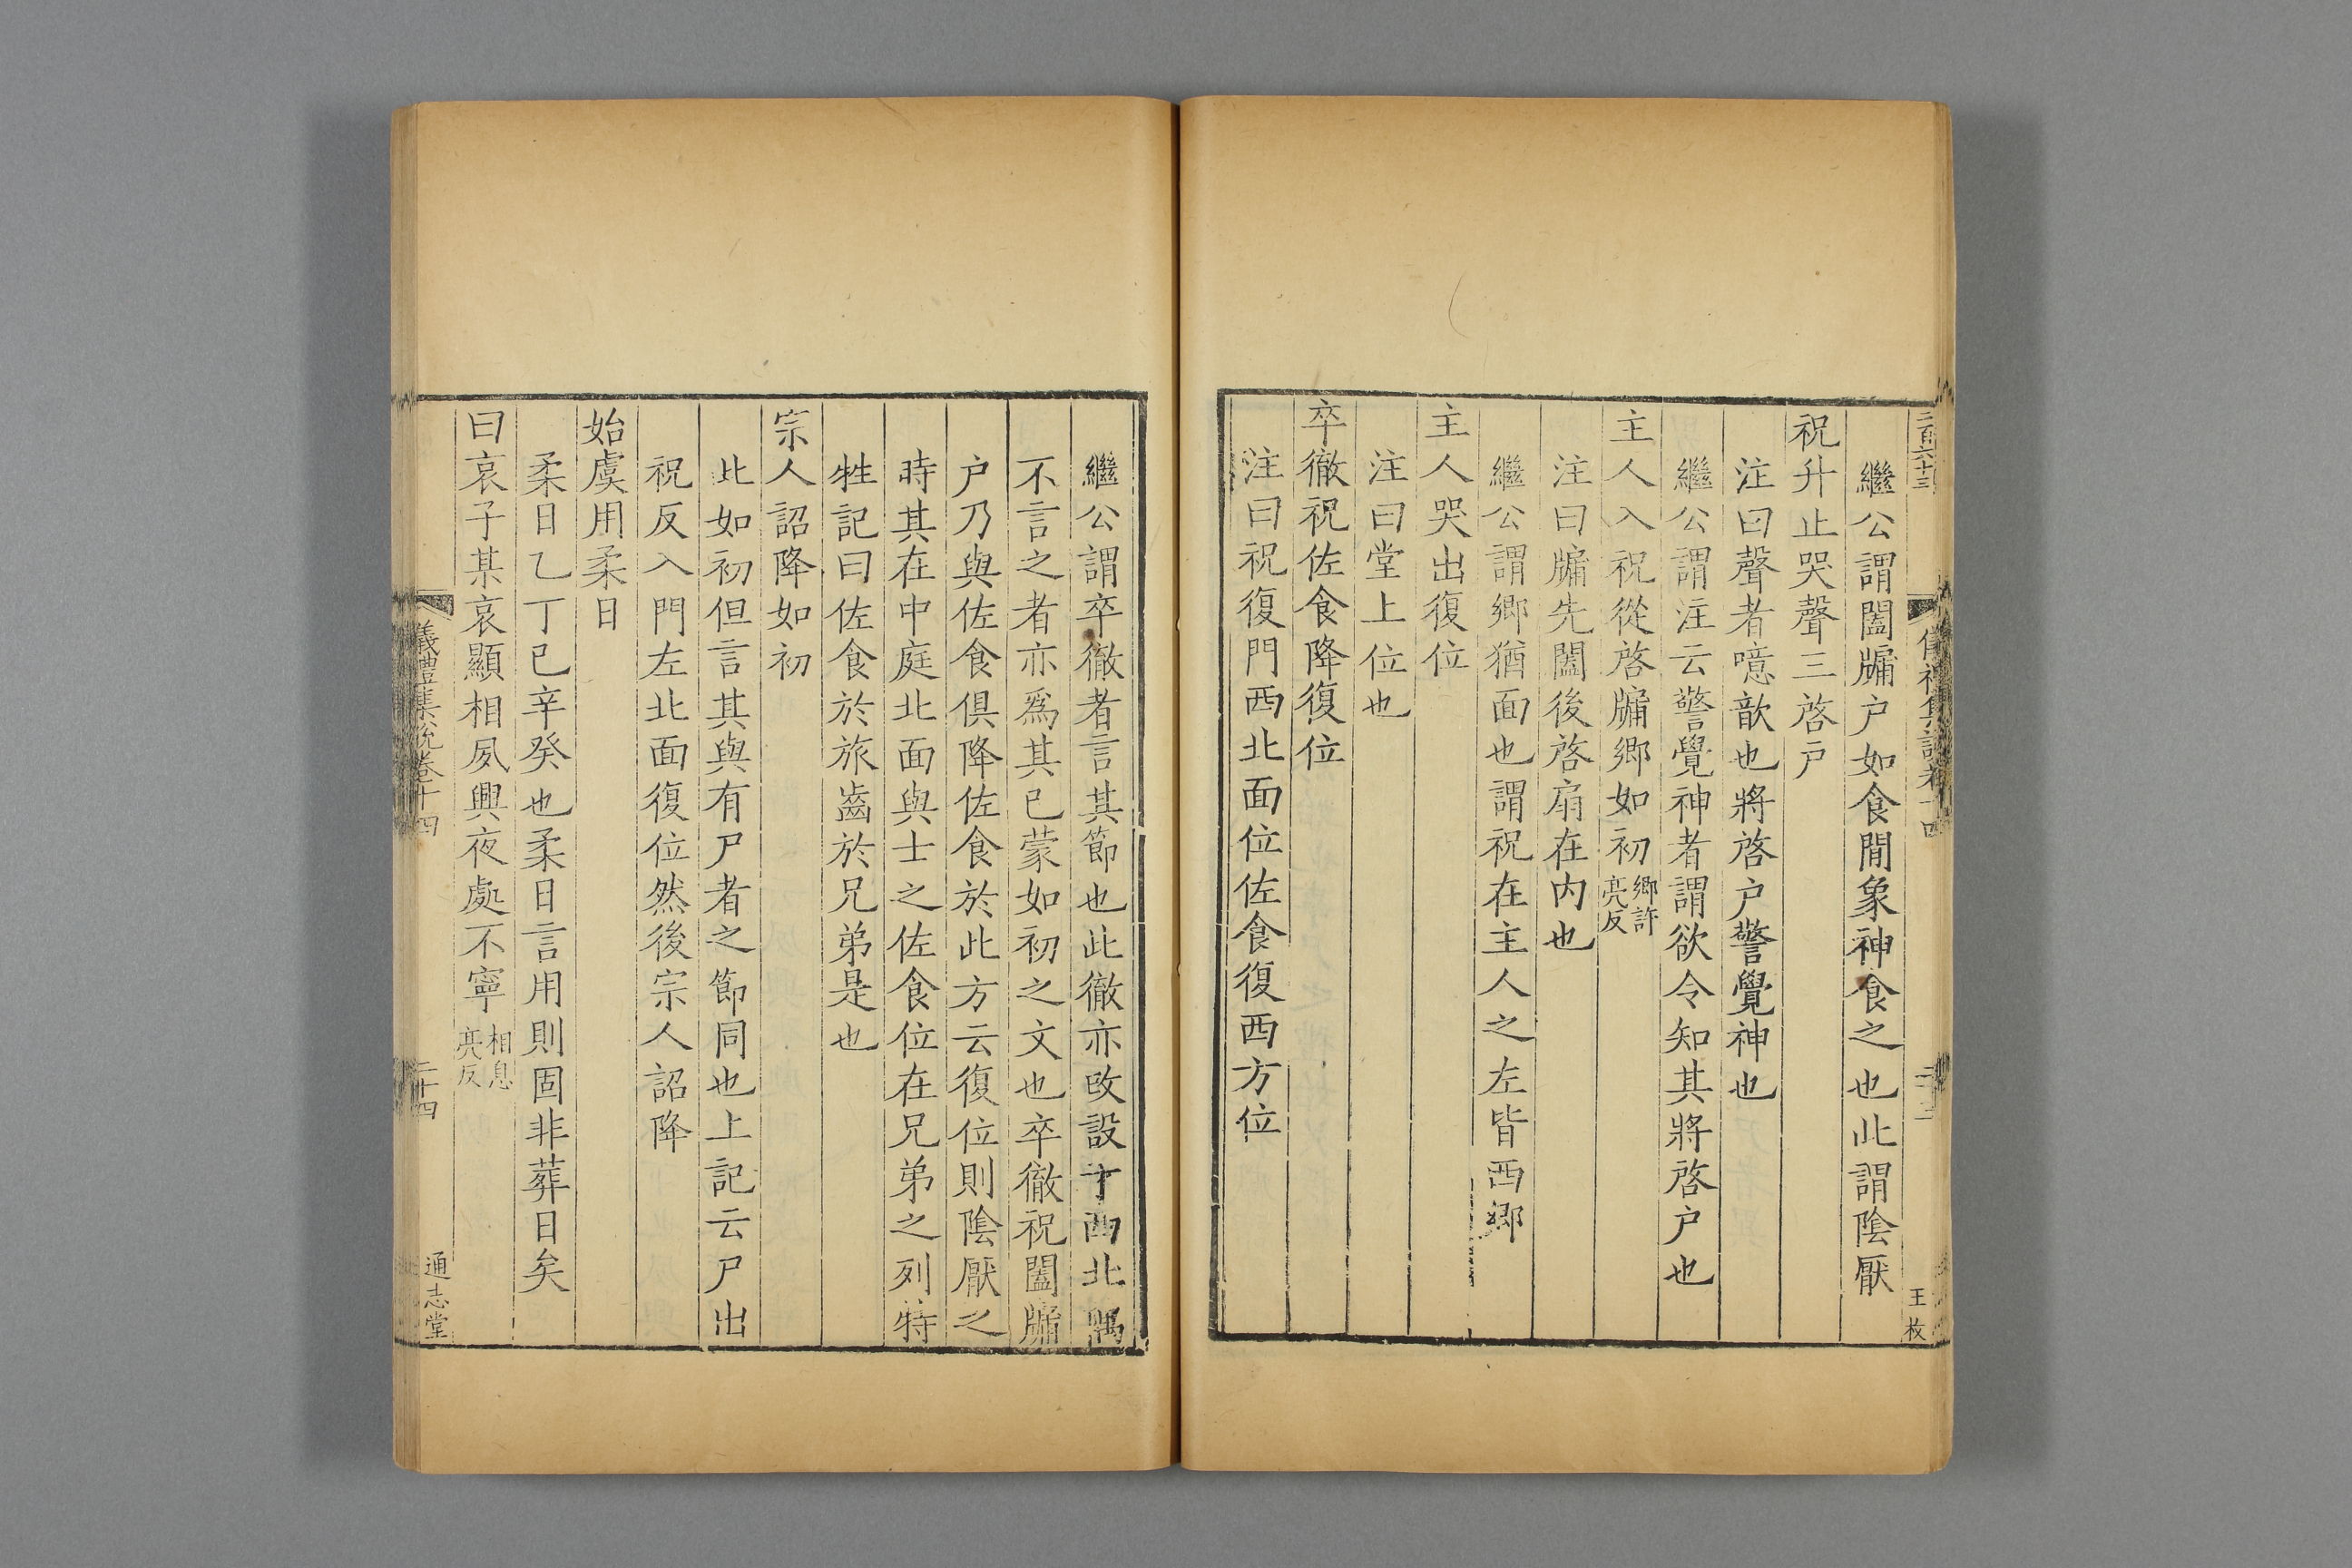 繼公謂闔牖户如食閒象神食之也此謂陰厭
祝升止哭聲三啓户
注曰聲者噫歆也將啓户警覺神也
繼公謂注云警覺神者謂欲令知其將啓户也
主人入祝從啓牖鄉如初鄉許亮反
注曰牖先闔後啓扇在内也
繼公謂鄉猶面也謂祝在主人之左皆西鄉
主人哭出復位
注曰堂上位也
卒徹祝佐食降復位
注曰祝復門西北面位佐食復西方位
王枚
繼公謂卒徹者言其節也此徹亦改設于西北隅
不言之者亦爲其已蒙如初之文也卒徹祝闔牖
户乃與佐食俱降佐食於此方云復位則陰厭之
時其在中庭北面與士之佐食位在兄弟之列特
牲記曰佐食於旅齒於兄弟是也
宗人詔降如初
此如初但言其與有尸者之節同也上記云尸出
祝反入門左北面復位然後宗人詔降
始虞用柔日
柔日乙丁已辛癸也柔日言用則固非葬日矣
曰哀子某哀顯相夙興夜處不寧相息亮反
儀禮集說卷十四
二十四
通志堂